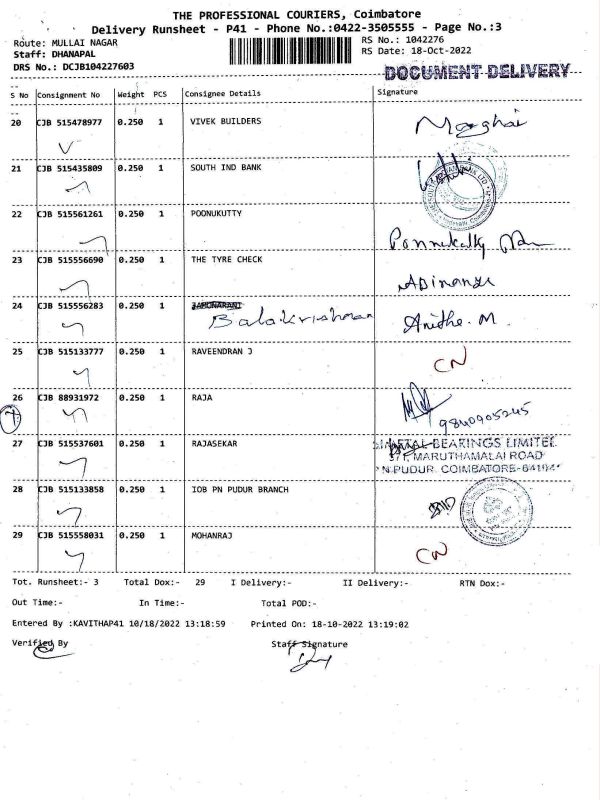 THE PROFESSIONAL COURIERS, Coimbatore
Delivery Runsheet - P41 - Phone No.:0422-3505555 - Page No.:3
Route: MULLAI NAGAR RS No.: 1042276
Staff: DHANAPAL RS Date: 18-Oct-2022
DRS No.: DCJB104227603
DOCUMENT DELIVERY
S No Consignment No Weight PCS Consignee Details Signature
20 CJB 515478977 0.250 1 VIVEK BUILDERS
21 CJB 515435809 0.250 1 SOUTH IND BANK
22 CJB 515561261 0.250 1 POONUKUTTY
23 CJB 515556690 0.250 1 THE TYRE CHECK
24 CJB 515556283 0.250 1 Balakrishnan Anithe. M.
25 CJB 515133777 0.250 1 RAVEENDRAN J CN
26 CJB 88931972 0.250 1 RAJA 9840905245
27 CJB 515537601 0.250 1 RAJASEKAR BEARINGS LIMITED
MARUTHAMALAI ROAD
N.PUDUR, COIMBATORE-
28 CJB 515133858 0.250 1 IOB PN PUDUR BRANCH
29 CJB 515558031 0.250 1 MOHANRAJ CN
Tot. Runsheet:- 3 Total Dox:- 29 I Delivery:- II Delivery:- RTN Dox:-
Out Time:- In Time:- Total POD:-
Entered By :KAVITHAP41 10/18/2022 13:18:59 Printed On: 18-10-2022 13:19:02
Verified By Staff Signature